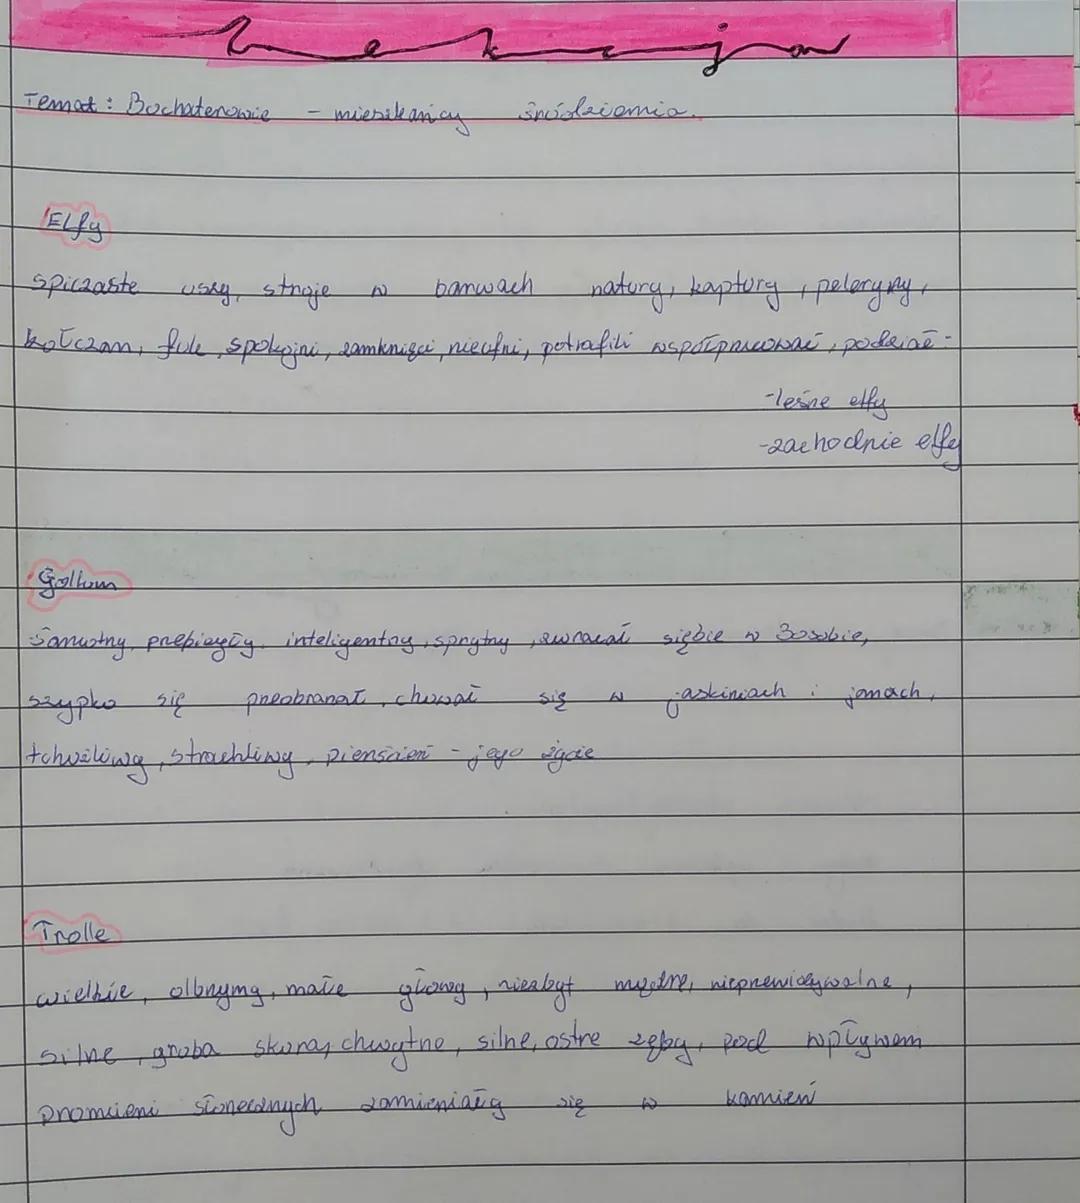 Lekcja
Temat: Bochaterowie - mieszkańcy śródziemia.
Elfy
spiczaste uszy, stroje w barwach natury, kaptury, peleryny,
kołczan, łuk, spokojni, zamknięci, nieufni, potrafili współpracować, podział -
-leśne elfy
-zachodnie elfy
Gollum
Samotny, przebiegły, inteligentny, sprytny, zwracał siębie w 3 osobie,
szypko się przeobrażał, chował się w jaskiniach i jamach,
tchwiliwy, strachliwy, pierścień - jego życie
Trolle
wielkie, olbrzymy, małe głowy, niezbyt mądre, nieprzewidywalne,
silne, gruba skóra, chwytne, silne, ostre zęby, pod wpływem
promieni słonecznych zamieniają się w kamień